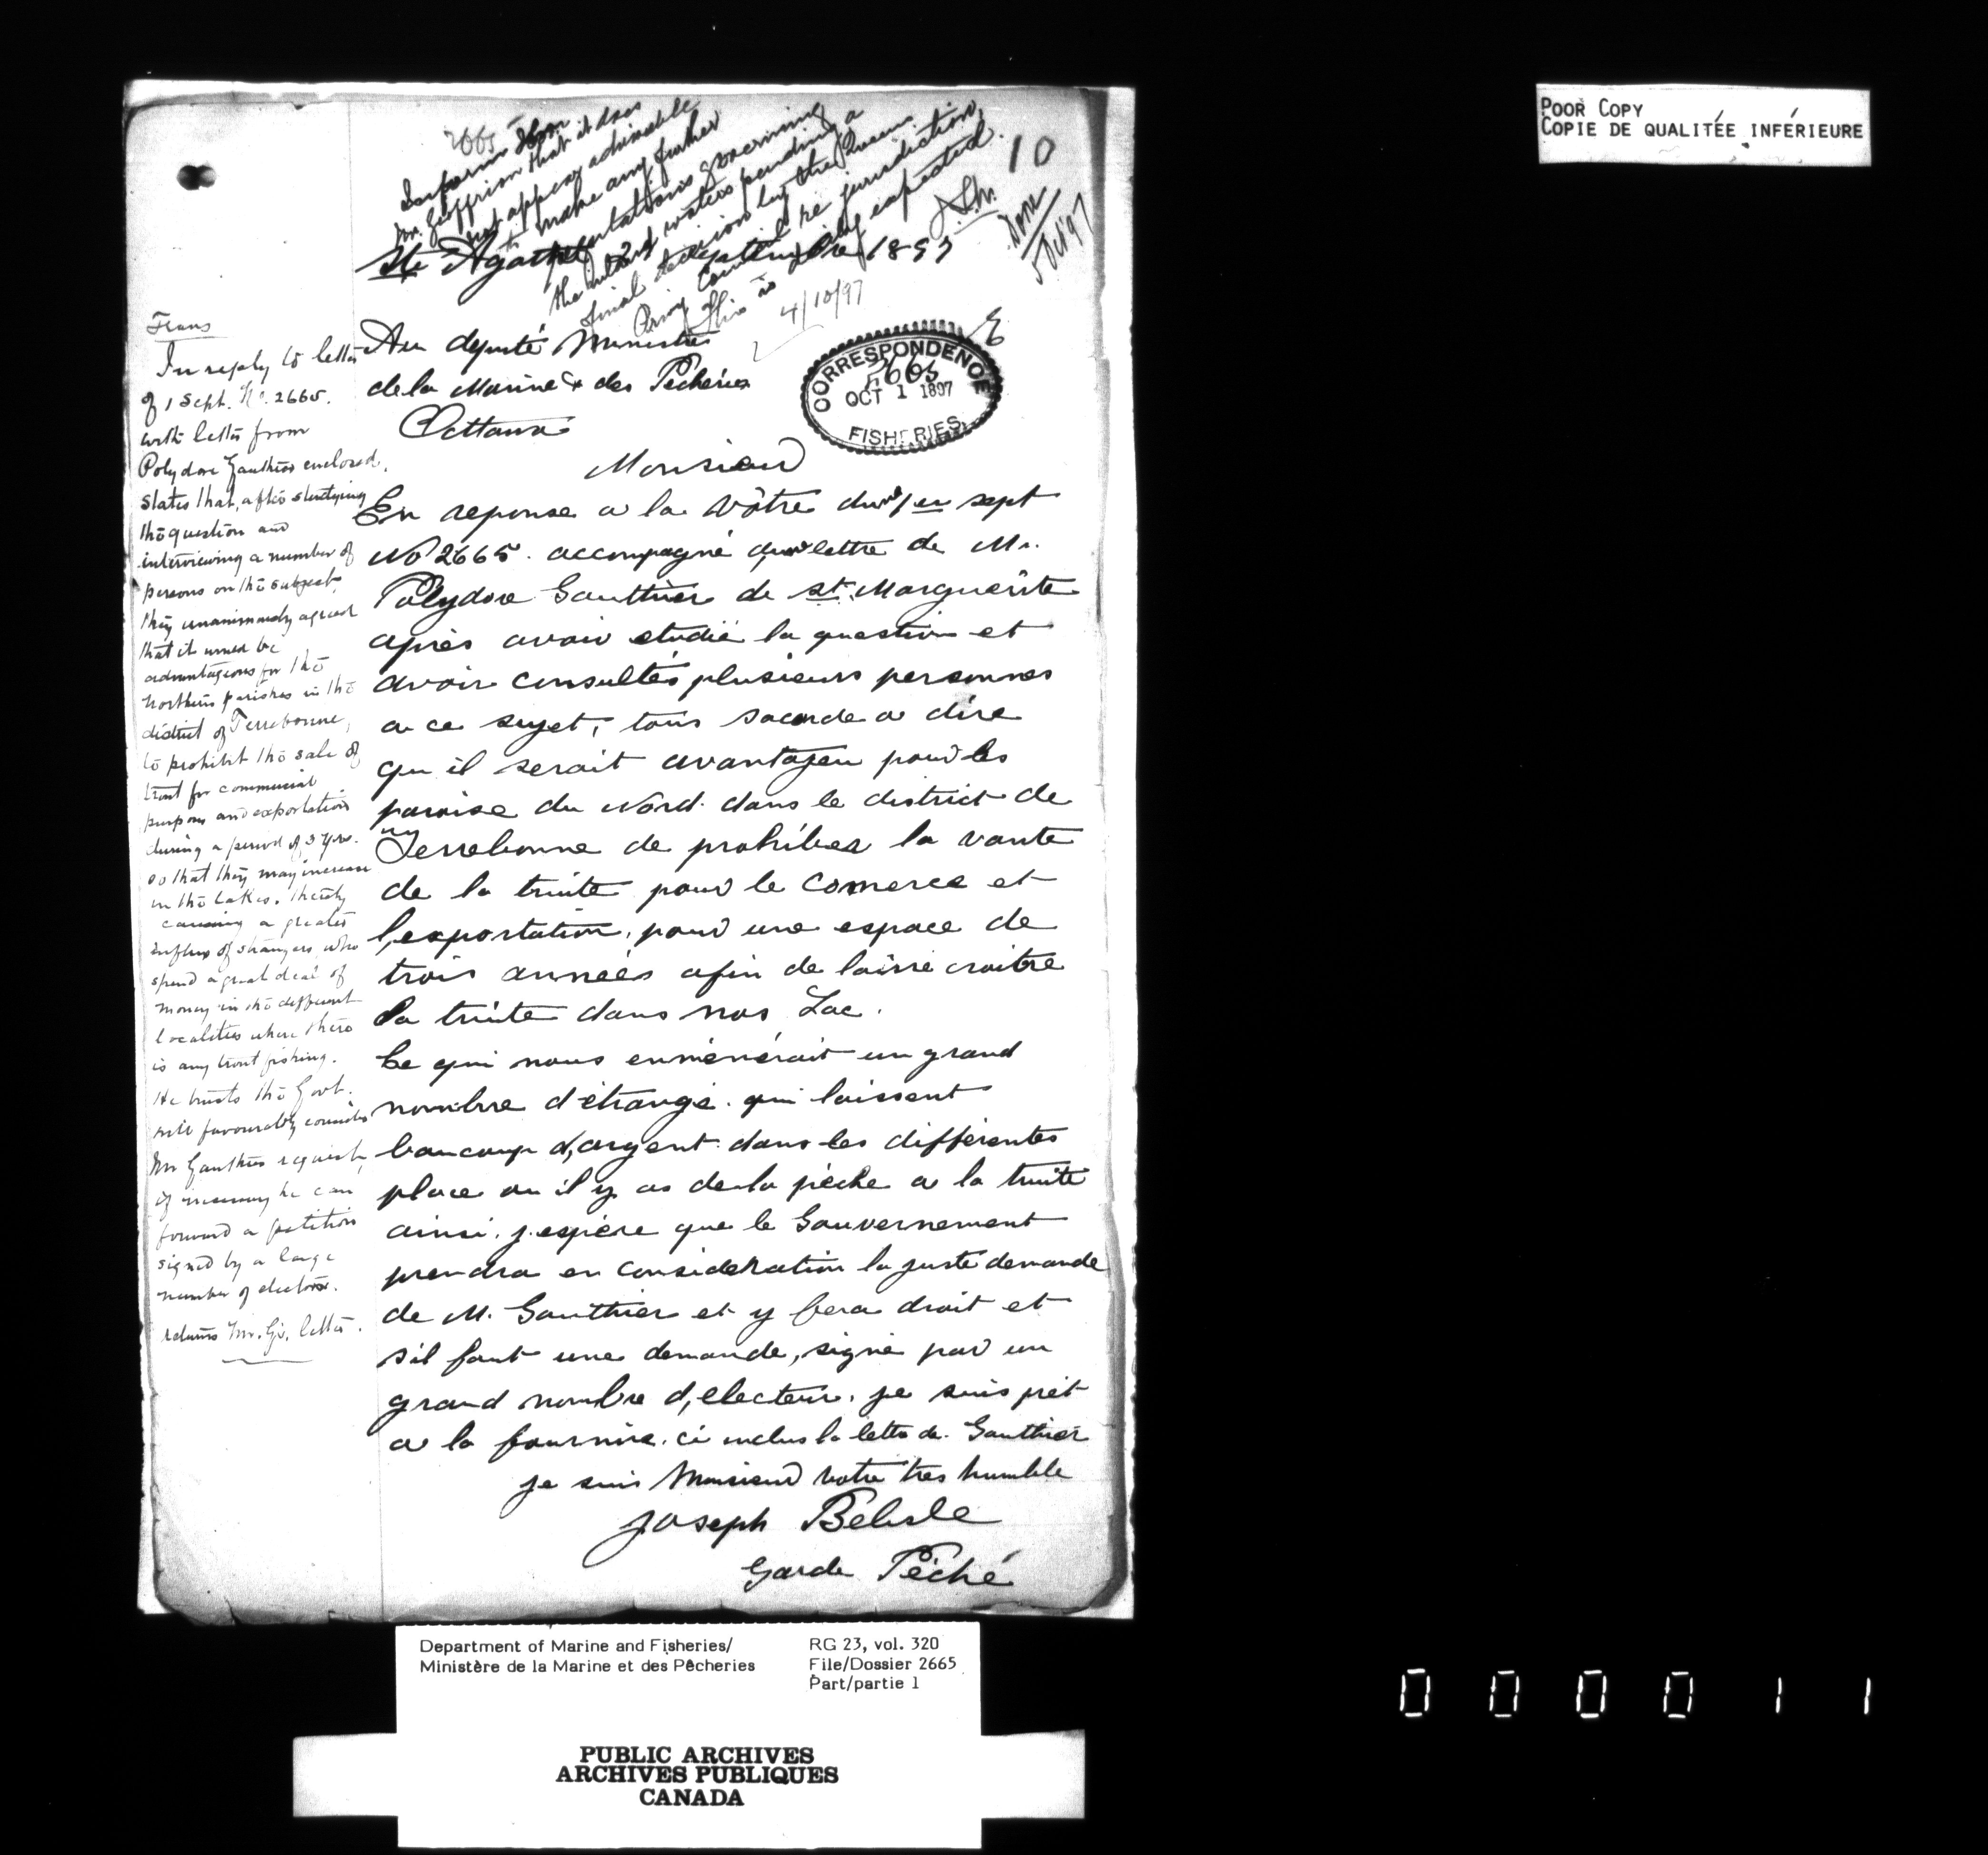 POOR COPY
COPIE DE QUALITÉE INFÉRIEURE
10
2665
Inform Hon
Mr. Geoffrion that it does
not appear advisable
to make any further
regulations governing
the inland waters pending a
final decision by the Queens
Privy Council re jurisdiction,
this is daily expected.
4/10/97
Done
5 Oct 97
Ste Agathe Septembre 1897
CORRESPONDENCE
2665
OCT 1 1897
FISHERIES
Au député Ministre
de la Marine & des Pêcheries
Ottawa
Monsieur
En reponse a la vôtre du 1er sept
No 2665. accompagné d'un lettre de Mr.
Polydore Gauthier de st. Marguerite
après avoir etudié la question et
avoir consultés plusieurs personnes
a ce sujet, tous sacorde a dire
qu il serait avantajeu pour les
paroise du Nord dans le district de
Terrebonne de prohiber la vante
de la truite pour le comerce et
l,exportation, pour une espace de
trois années afin de laisse croitre
la truite dans nos Lac.
Ce qui nous enmènerait un grand
nombre d'étrangé. qui laissent
baucoup d,argent dans les différentes
place ou il y as de la pèche a la truite
ainsi. j.espère que le Gouvernement
prendra en consideration la juste demande
de M. Gauthier et y fera droit et
s'il faut une demande, signé par un
grand nombre d,electeur, je suis prèt
a la fournire. ci inclus la lettre de Gauthier
je suis Monsieur votre tres humble
Joseph Belisle
Garde Pêché
Trans
In reply to letter
of 1 Sept. No. 2665.
with letter from
Polydore Gauthier enclosed,
states that, after studying
the question and
interviewing a number of
persons on the subject,
they unanimously agreed
that it would be
advantageous for the
northern parishes in the
district of Terrebonne,
to prohibit the sale of
trout for commercial
purposes and exportation
during a period of 3 yrs.
so that they may increase
in the lakes, thereby
causing a greater
influx of strangers who
spend a great deal of
money in the different
localities where there
is any trout fishing.
He trusts the Govt.
will favourably consider
Mr Gauthier request,
if necessary he can
forward a petition
signed by a large
number of electors.
returns Mr. G's. letter.
Department of Marine and Fisheries/
Ministère de la Marine et des Pêcheries
RG 23, vol. 320
File/Dossier 2665
Part/partie 1
PUBLIC ARCHIVES
ARCHIVES PUBLIQUES
CANADA
000011